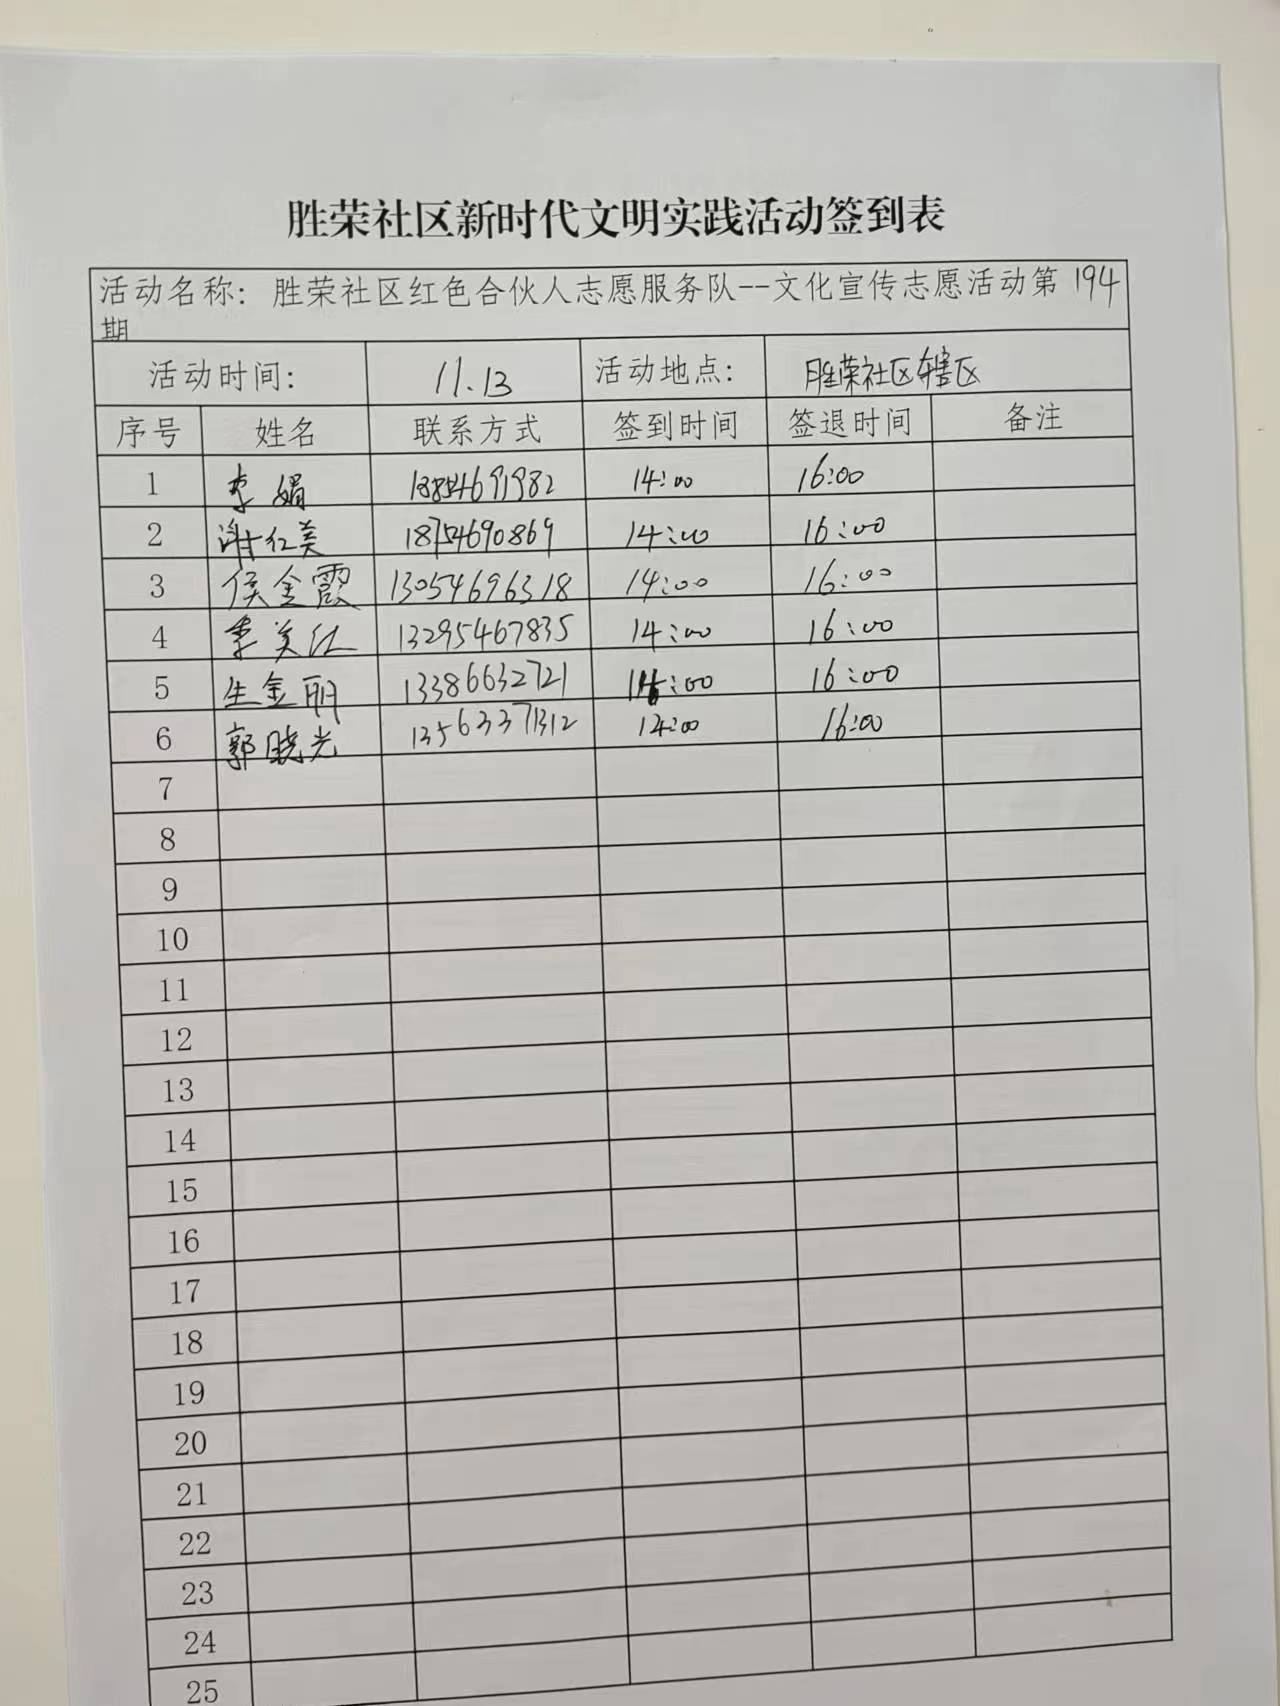 胜荣社区新时代文明实践活动签到表
活动名称：胜荣社区红色合伙人志愿服务队--文化宣传志愿活动第194
期
活动时间： 11.13 活动地点： 胜荣社区辖区
序号 姓名 联系方式 签到时间 签退时间 备注
1 李娟 13854691982 14:00 16:00
2 谢红美 18754690869 14:00 16:00
3 侯金霞 13054696318 14:00 16:00
4 李美红 13295467835 14:00 16:00
5 生金丽 13386632721 14:00 16:00
6 郭晓光 13563371312 14:00 16:00
7
8
9
10
11
12
13
14
15
16
17
18
19
20
21
22
23
24
25